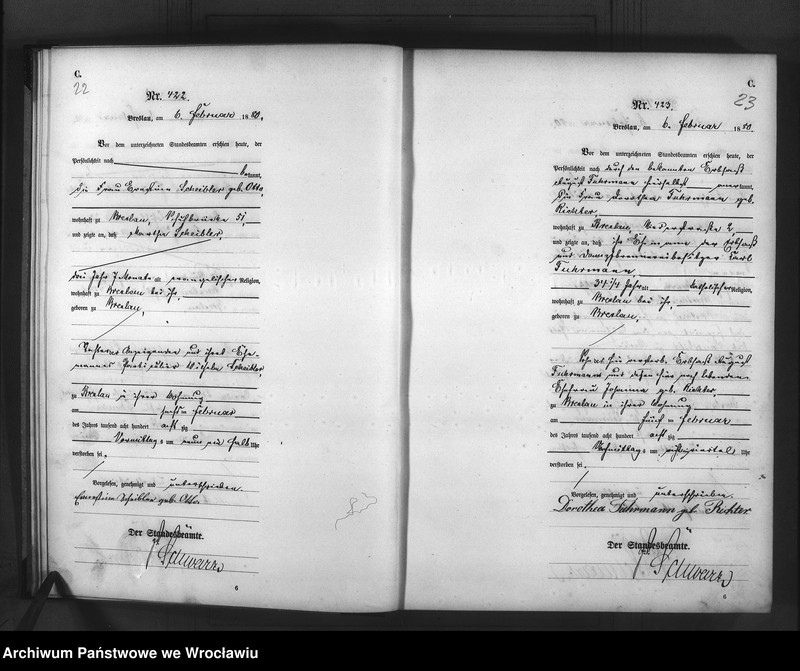 C.
22
Nr. 422.
Breslau, am 6. Februar 1880.
Vor dem unterzeichneten Standesbeamten erschien heute, der
Persönlichkeit nach
bekannt,
die Frau Ernestine Scheibler geb. Otto,
wohnhaft zu Breslau, Schuhbrücke 51,
und zeigte an, daß Martha Scheibler,
drei Jahr 7 Monate alt, evangelischer Religion,
wohnhaft zu Breslau bei ihr,
geboren zu Breslau,
Tochter der Anzeigenden und ihres Ehe-
mannes Wilhelm Scheibler,
zu Breslau in ihrer Wohnung
am sechsten Februar
des Jahres tausend acht hundert achtzig
Vormittags um neun ein halb Uhr
verstorben sei.
Vorgelesen, genehmigt und unterschrieben.
Ernestine Scheibler geb. Otto.
Der Standesbeamte.
Schwarz
6
C.
23
Nr. 423.
Breslau, am 6. Februar 1880.
Vor dem unterzeichneten Standesbeamten erschien heute, der
Persönlichkeit nach durch den bekannten Erbsaß
August Fuhrmann hierselbst anerkannt,
die Frau Dorothea Fuhrmann geb.
Richter,
wohnhaft zu Breslau, 2,
und zeigte an, daß ihr Ehemann der Erbsaß
und Karl
Fuhrmann,
34 1/4 Jahr alt, katholischer Religion,
wohnhaft zu Breslau bei ihr,
geboren zu Breslau,
Sohn des hier verstorb. Erbsaß August
Fuhrmann und dessen hier noch lebenden
Ehefrau Johanna geb. Richter,
zu Breslau in ihrer Wohnung
am fünften Februar
des Jahres tausend acht hundert achtzig
Nachmittags um Uhr
verstorben sei.
Vorgelesen, genehmigt und unterschrieben.
Dorothea Fuhrmann geb Richter
Der Standesbeamte.
Schwarz
6
Archiwum Państwowe we Wrocławiu